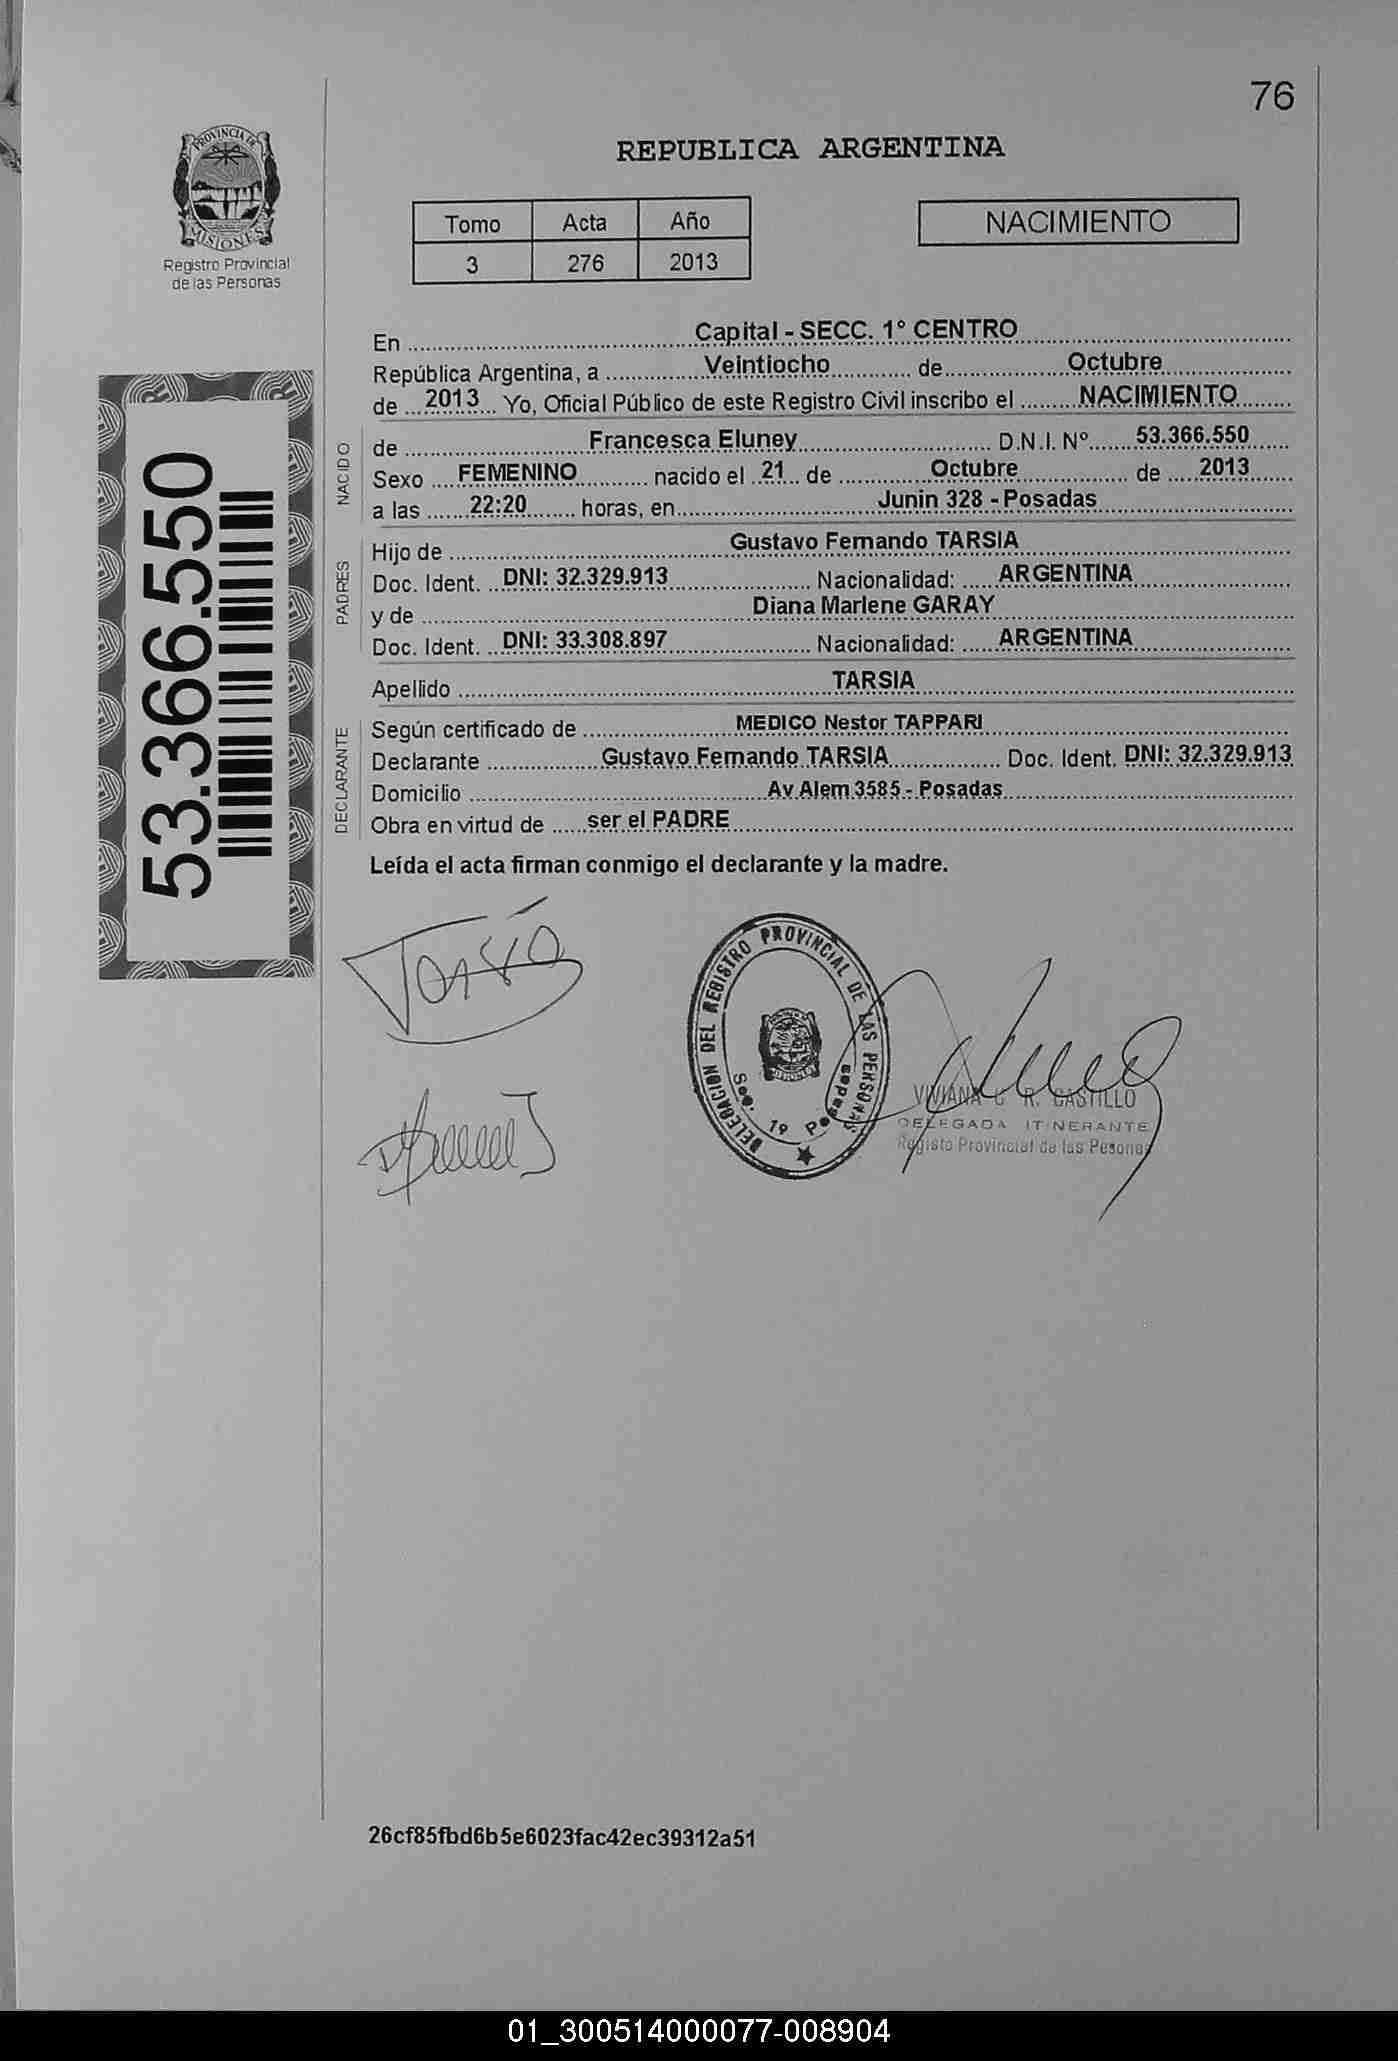 76
PROVINCIA DE
MISIONES
Registro Provincial
de las Personas
REPUBLICA ARGENTINA
Tomo Acta Año
3 276 2013
NACIMIENTO
En Capital - SECC. 1° CENTRO
República Argentina, a Veintiocho de Octubre
de 2013 Yo, Oficial Público de este Registro Civil inscribo el NACIMIENTO
NACIDO
de Francesca Eluney D.N.I. Nº 53.366.550
Sexo FEMENINO nacido el 21 de Octubre de 2013
a las 22:20 horas, en Junin 328 - Posadas
PADRES
Hijo de Gustavo Fernando TARSIA
Doc. Ident. DNI: 32.329.913 Nacionalidad: ARGENTINA
y de Diana Marlene GARAY
Doc. Ident. DNI: 33.308.897 Nacionalidad: ARGENTINA
Apellido TARSIA
DECLARANTE
Según certificado de MEDICO Nestor TAPPARI
Declarante Gustavo Fernando TARSIA Doc. Ident. DNI: 32.329.913
Domicilio Av Alem 3585 - Posadas
Obra en virtud de ser el PADRE
Leída el acta firman conmigo el declarante y la madre.
53.366.550
Tarsia
DELEGACION DEL REGISTRO PROVINCIAL DE LAS PERSONAS
Sec. 1º Posadas
VIVIANA C R. CASTILLO
DELEGADA ITINERANTE
Registo Provincial de las Pesonas
26cf85fbd6b5e6023fac42ec39312a51
01_300514000077-008904